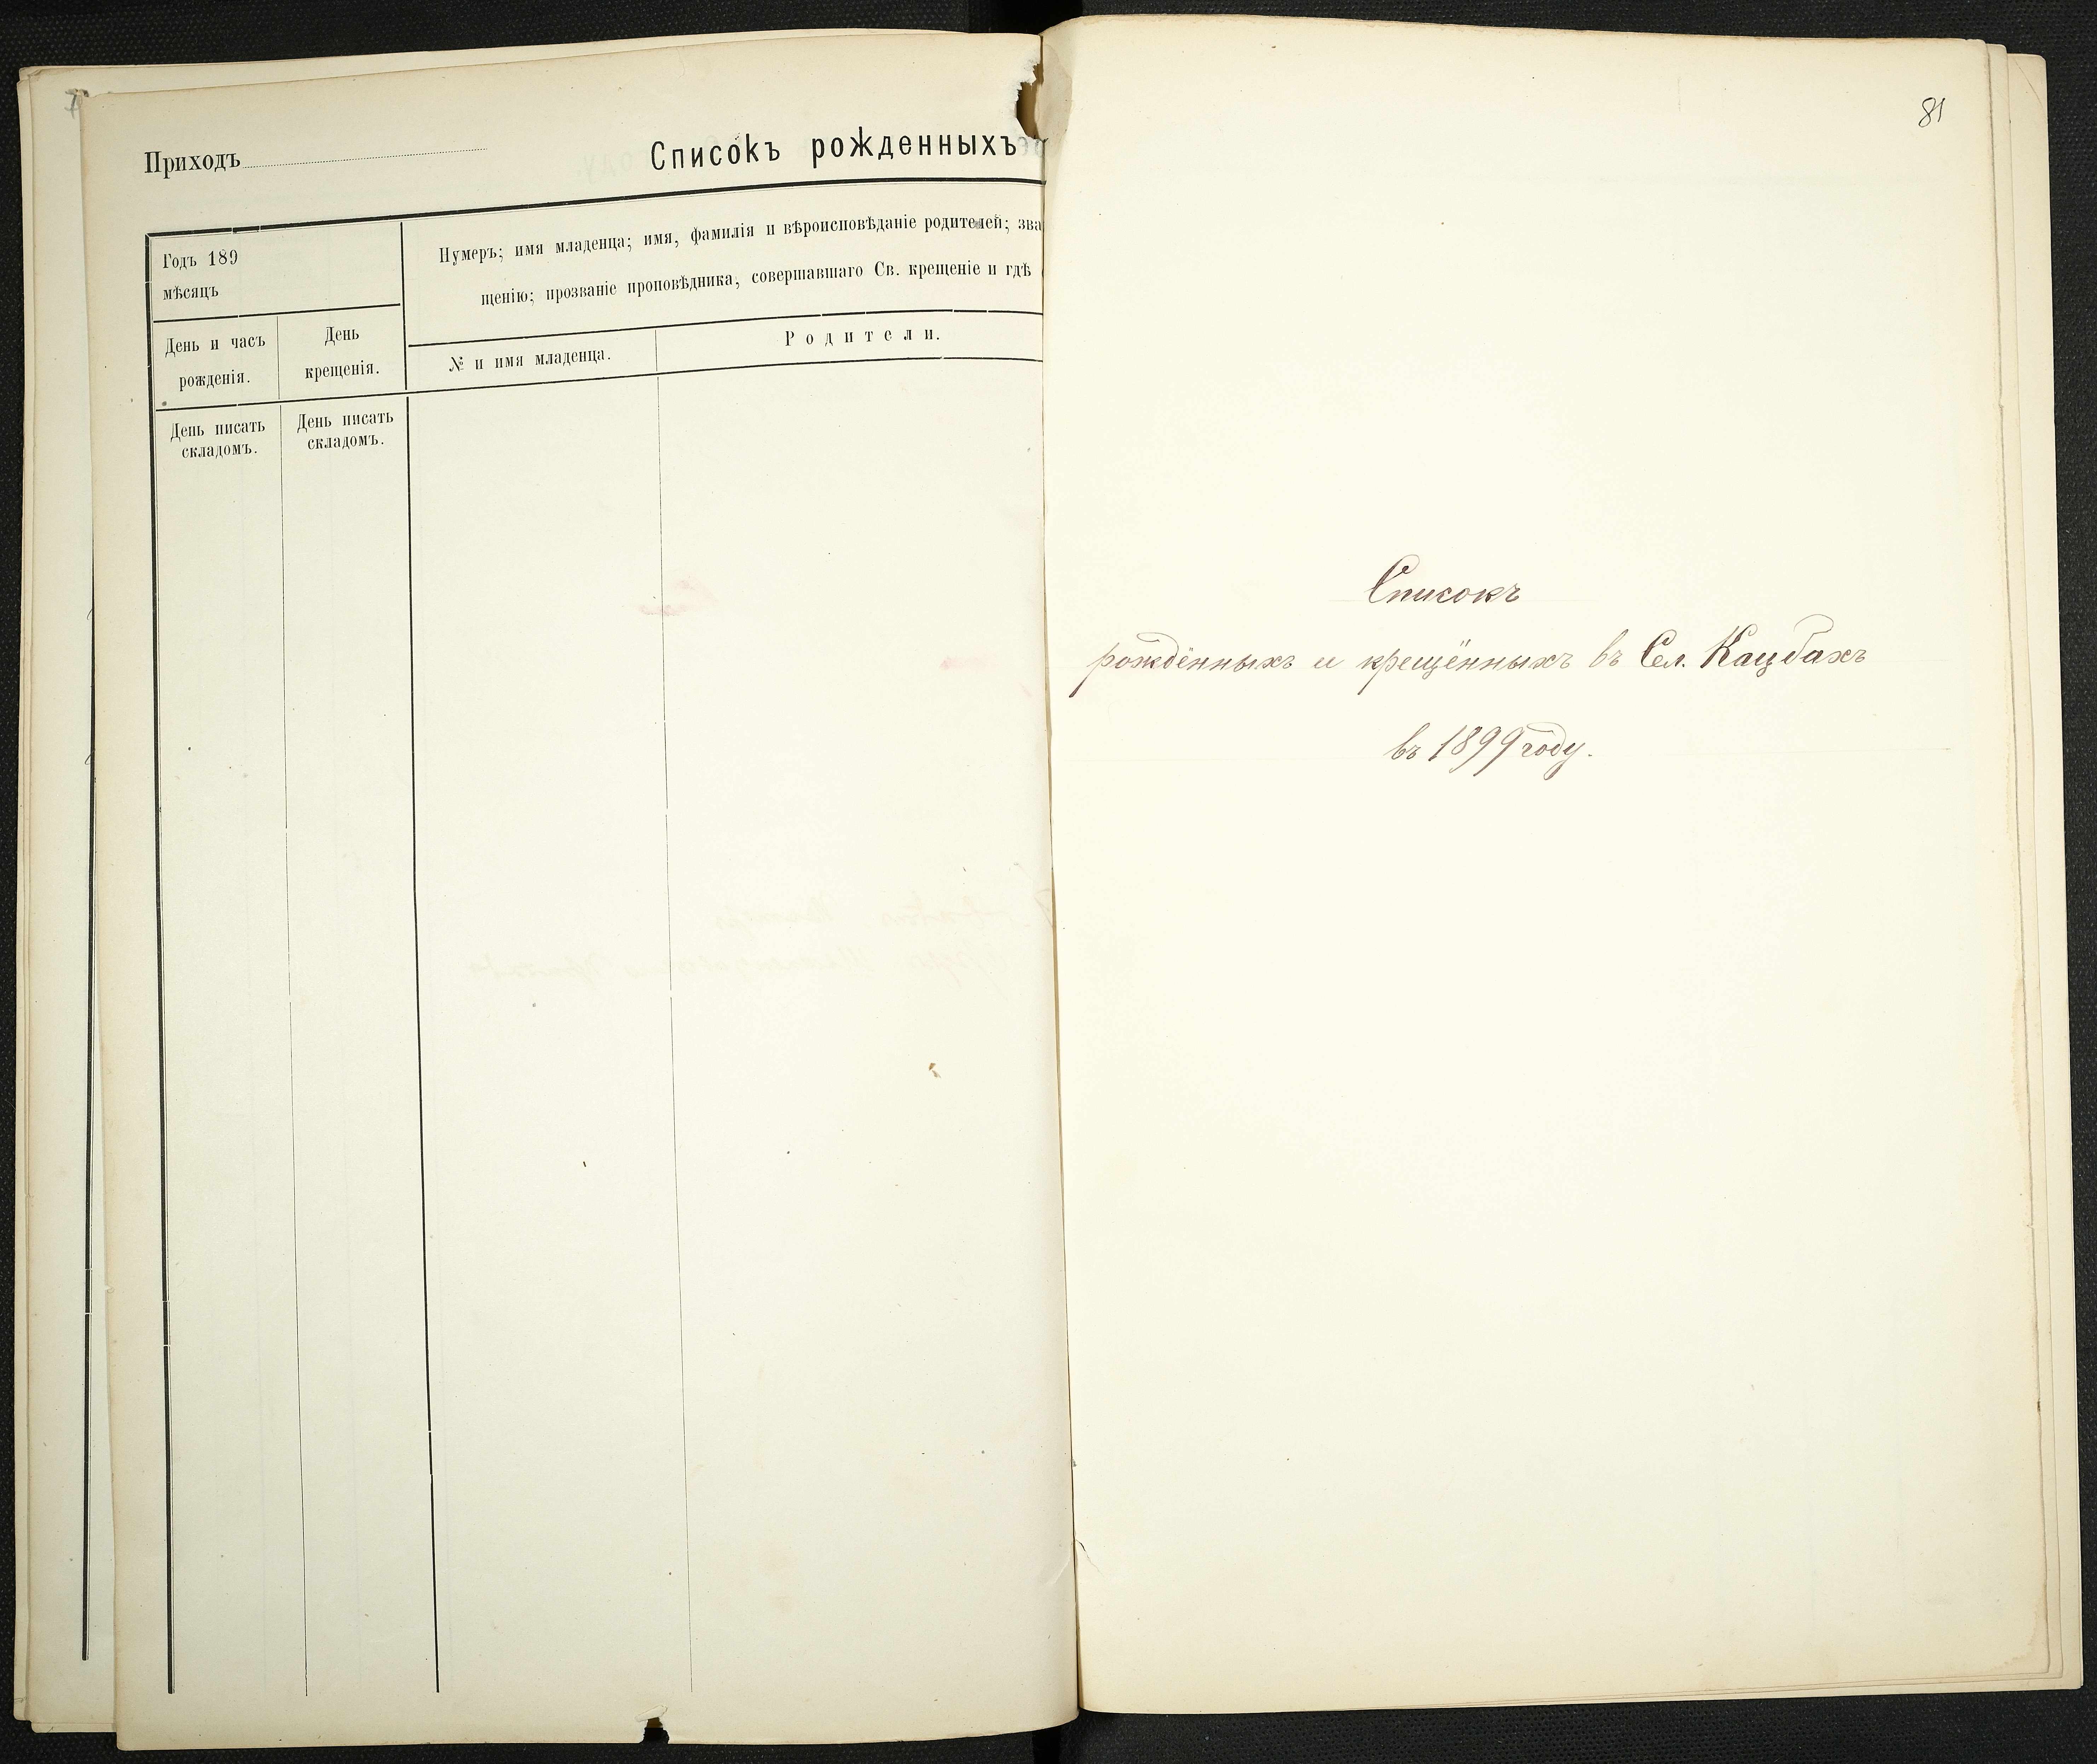 Приходъ
Списокъ рожденныхъ
Годъ 189
мѣсяцъ
Нумеръ; имя младенца; имя, фамилія и вѣроисповѣданіе родителей; зва
щенію; прозваніе проповѣдника, совершавшаго Св. крещеніе и гдѣ
День и часъ
рожденія.
День
крещенія.
№ и имя младенца.
Родители.
День писать
складомъ.
День писать
складомъ.
81
Списокъ
рождённыхъ и крещённыхъ въ Сел. Кацбахъ
въ 1899 году.